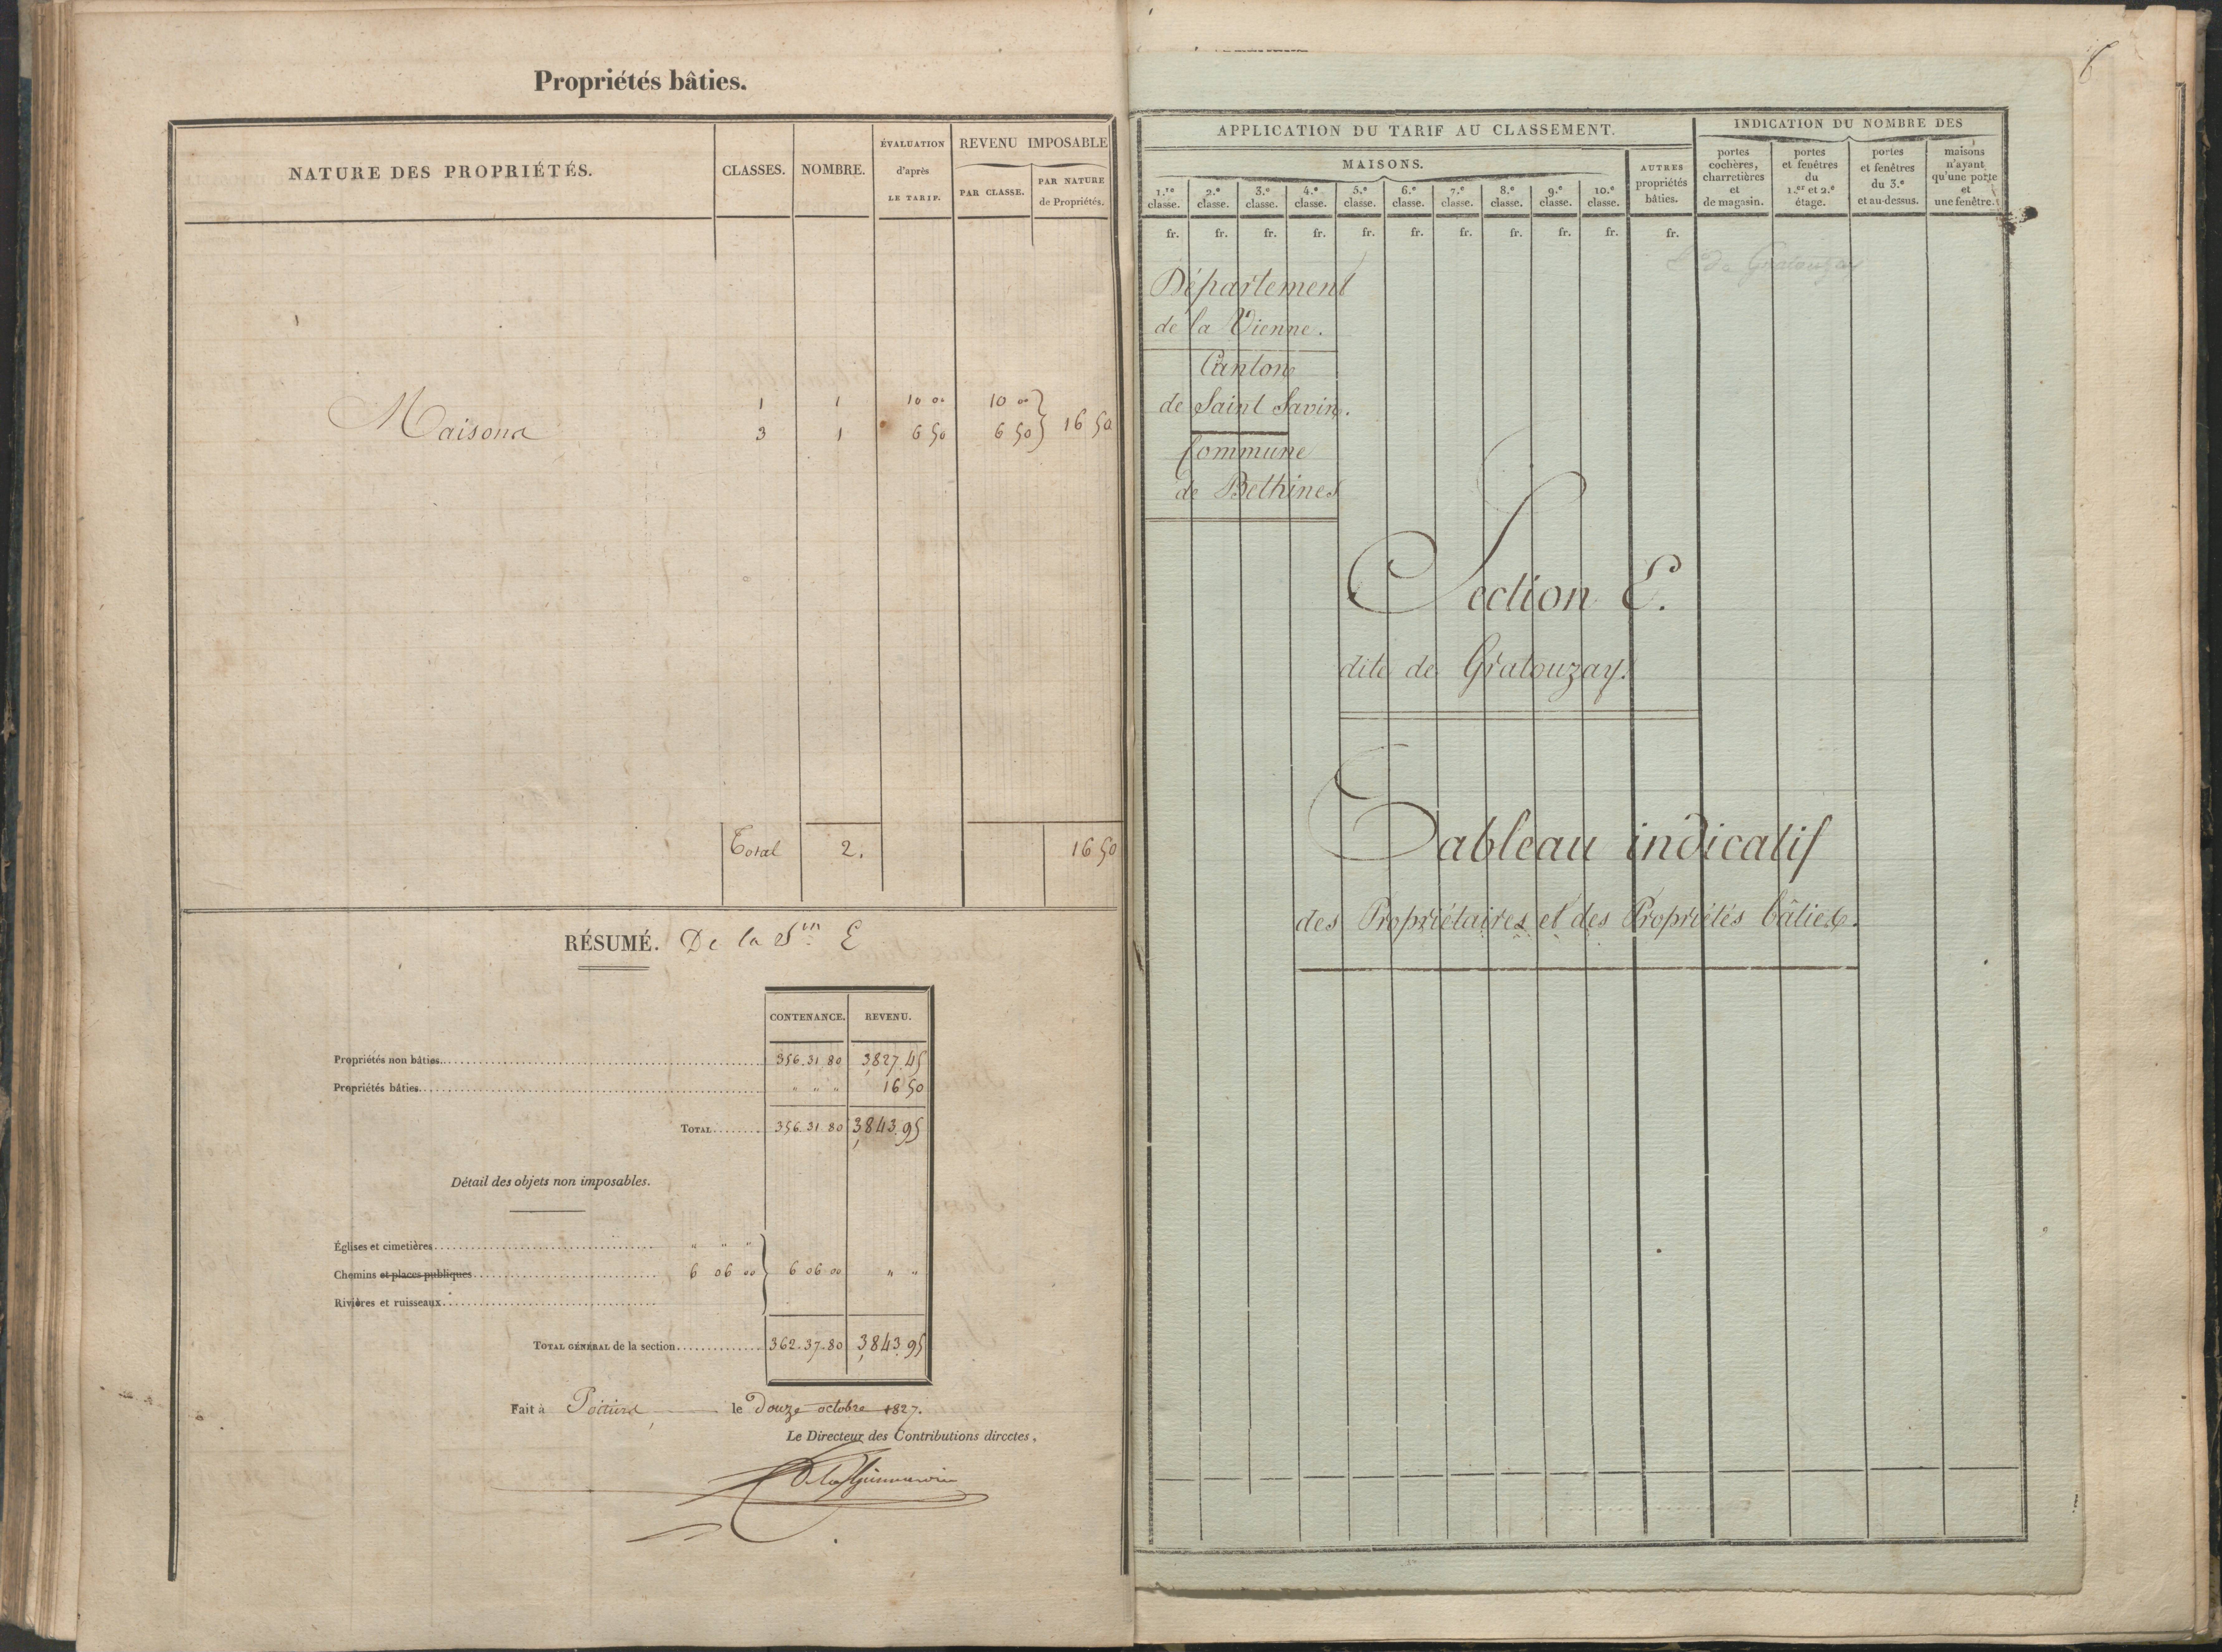 Propriétés bâties.
NATURE DES PROPRIÉTÉS. CLASSES. NOMBRE. ÉVALUATION d'après LE TARIF. REVENU IMPOSABLE
PAR CLASSE. PAR NATURE de Propriétés.
1 1 10 00 10 00
Maisons 3 1 6 50 6 50 16 50
Total 2. 16 50
RÉSUMÉ. De la Son E
CONTENANCE. REVENU.
Propriétés non bâties 356.31.80 3,827.45
Propriétés bâties " " " 16 50
TOTAL 356.31.80 3,843.95
Détail des objets non imposables.
Églises et cimetières " " "
Chemins et places publiques 6 06 00 6 06 00 " "
Rivières et ruisseaux
TOTAL GÉNÉRAL de la section 362.37.80 3,843.95
Fait à Poitiers, le Douze octobre 1827.
Le Directeur des Contributions directes,
6
APPLICATION DU TARIF AU CLASSEMENT. INDICATION DU NOMBRE DES
MAISONS. AUTRES propriétés bâties. portes cochères, charretières et de magasin. portes et fenêtres du 1.er et 2.e étage. portes et fenêtres du 3.e et au-dessus. maisons n'ayant qu'une porte et une fenêtre.
1.re classe. 2.e classe. 3.e classe. 4.e classe. 5.e classe. 6.e classe. 7.e classe. 8.e classe. 9.e classe. 10.e classe.
fr. fr. fr. fr. fr. fr. fr. fr. fr. fr. fr.
E de Gratouzay
Département
de la Vienne.
Canton
de Saint Savin.
Commune
de Bethines
Section E.
dite de Gratouzay.
Tableau indicatif
des Propriétaires et des Propriétés bâties.